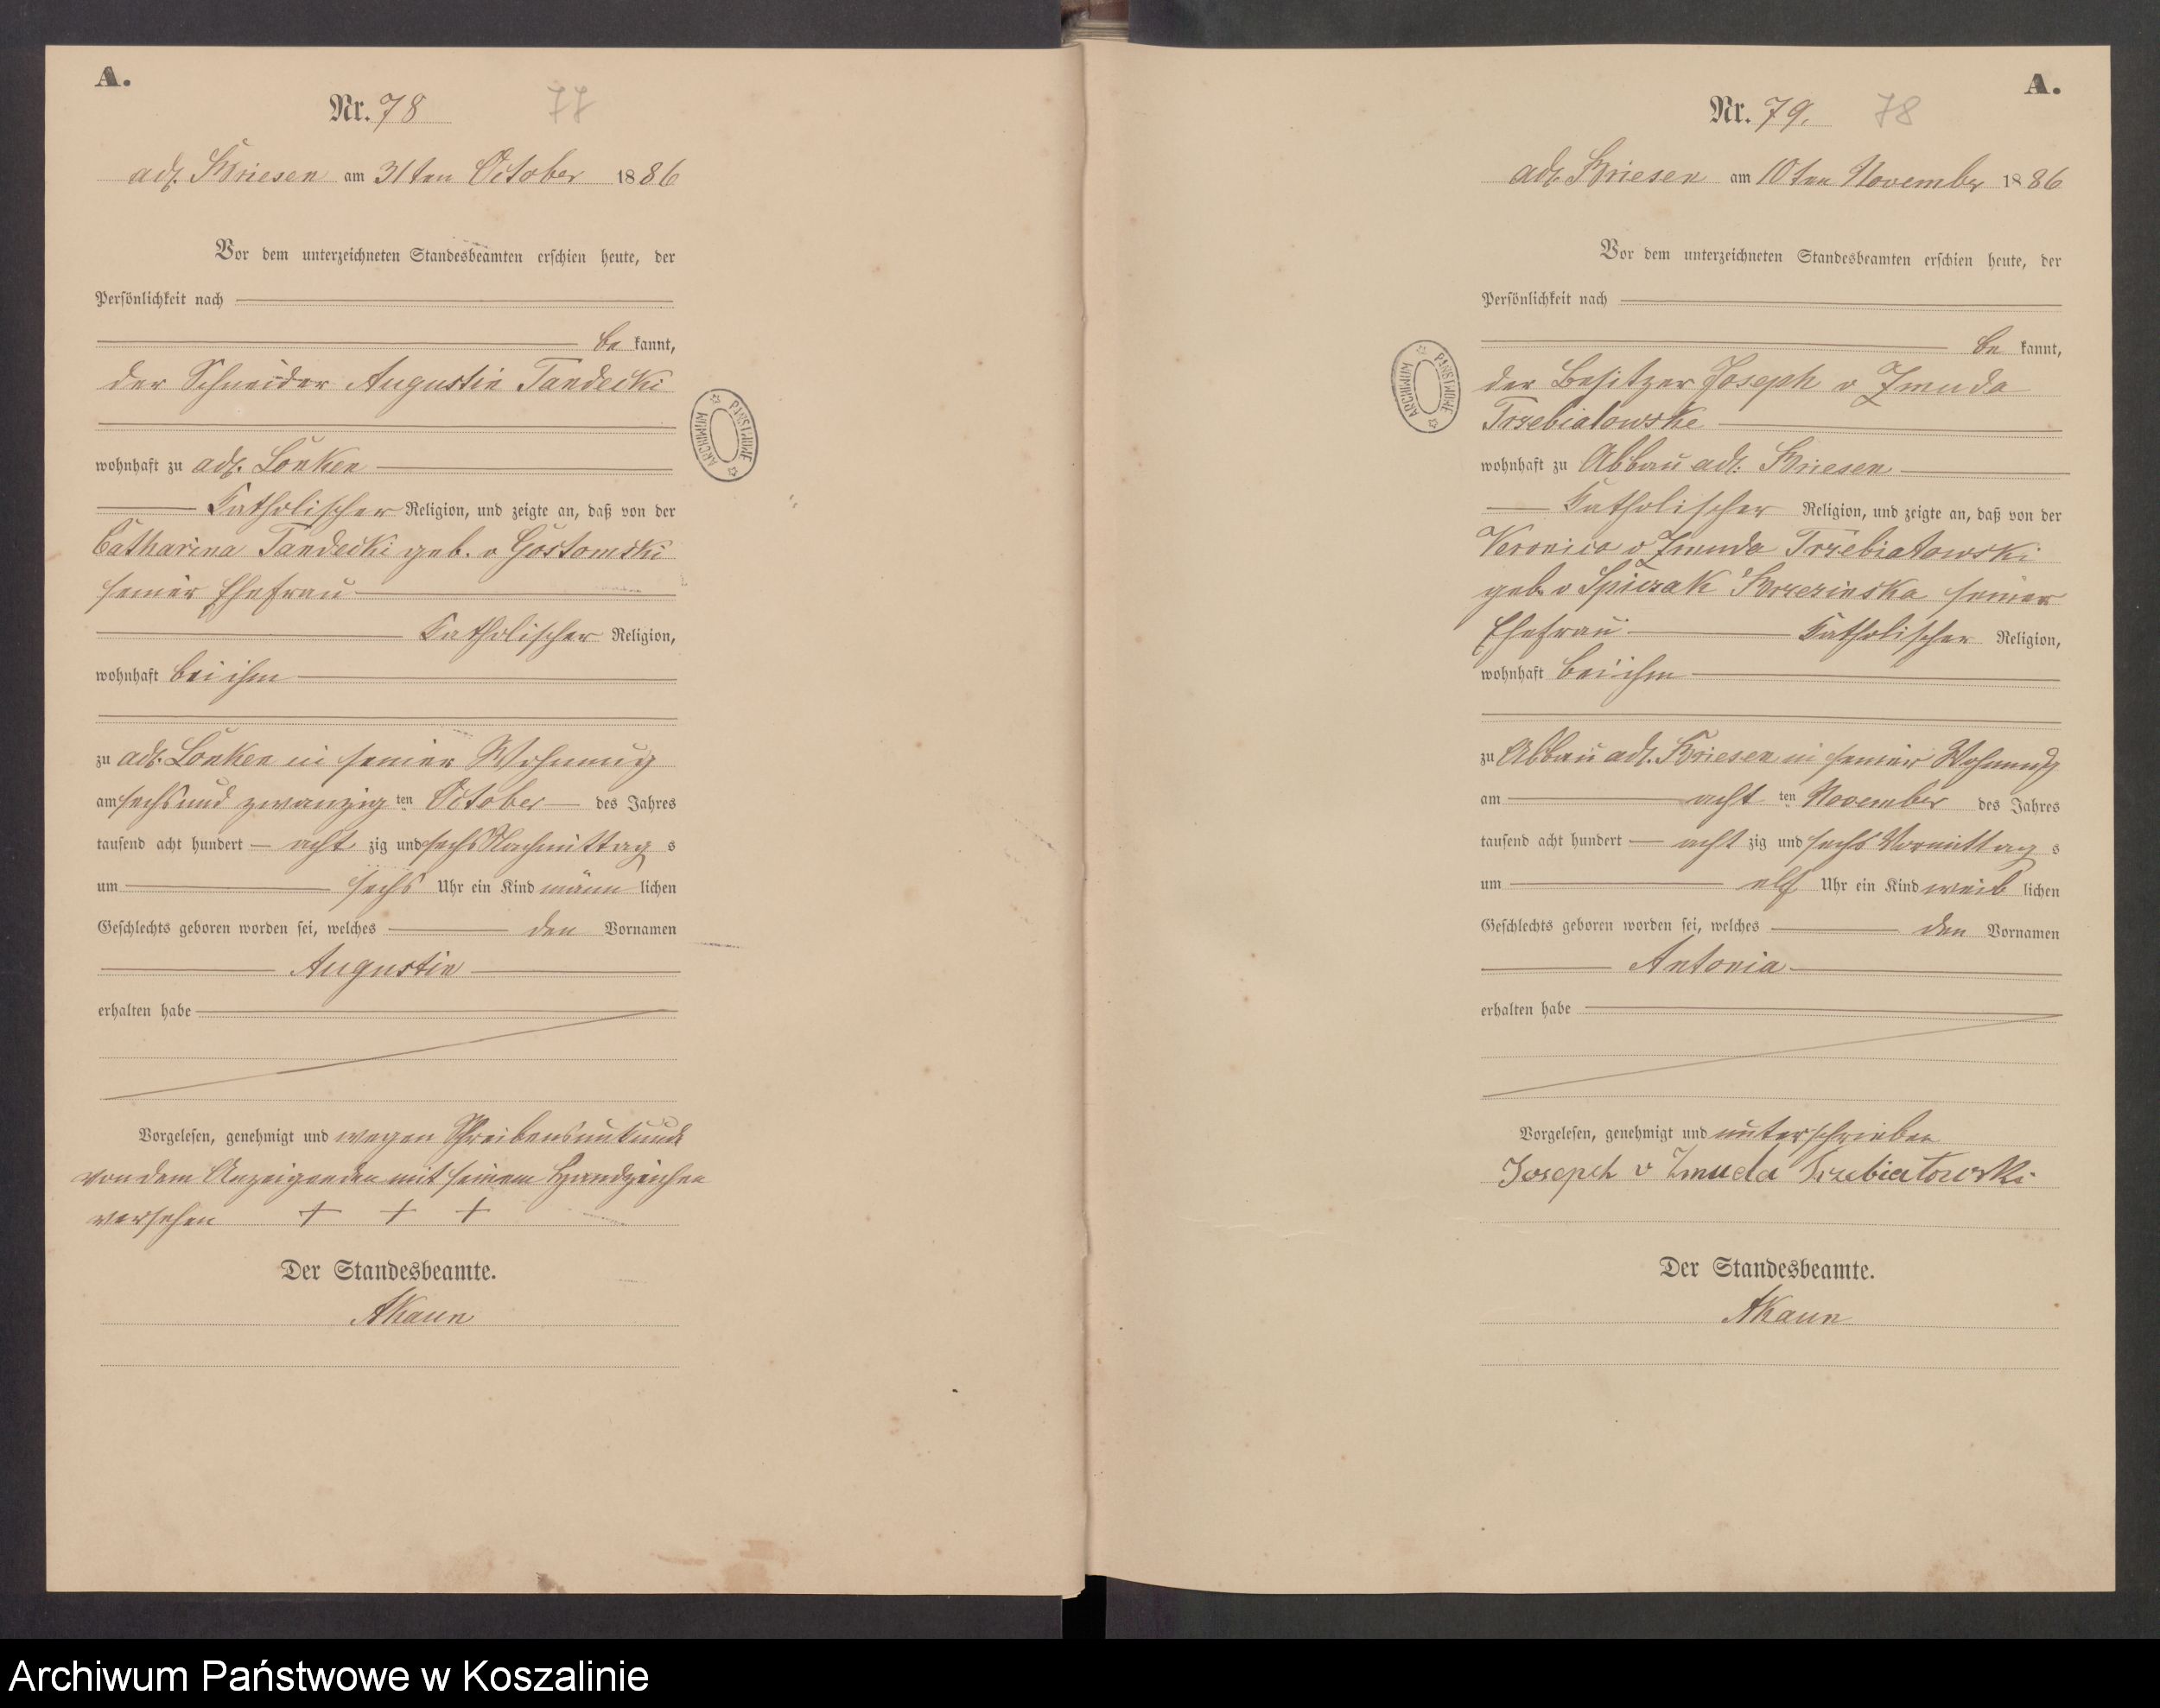 A.
Nr. 78
77
adl. Briesen am 31ten October 1886
Vor dem unterzeichneten Standesbeamten erschien heute, der
Persönlichkeit nach
be kannt,
der Schneider Augustin Tandecki
wohnhaft zu adl. Lonken
Katholischer Religion, und zeigte an, daß von der
Catharina Tandecki geb. v Gostomski
seiner Ehefrau
Katholischer Religion,
wohnhaft bei ihm
zu adl. Lonken in seiner Wohnung
am sechs und zwanzig ten October des Jahres
tausend acht hundert acht zig und sechs Nachmittag s
um sechs Uhr ein Kind männ lichen
Geschlechts geboren worden sei, welches den Vornamen
Augustin
erhalten habe
Vorgelesen, genehmigt und wegen Schreibensunkunde
von dem Anzeigenden mit seinem Handzeichen
versehen + + +
Der Standesbeamte.
AKaun
ARCHIWUM PAŃSTWOWE
A.
Nr. 79.
78
adl. Briesen am 10ten November 1886
Vor dem unterzeichneten Standesbeamten erschien heute, der
Persönlichkeit nach
be kannt,
der Besitzer Joseph v Zmuda
Trzebiatowske
wohnhaft zu Abbau adl. Briesen
Katholischer Religion, und zeigte an, daß von der
Veronica v Zmuda Trzebiatowski
geb. v Spiczak Brzezinska seiner
Ehefrau Katholischer Religion,
wohnhaft bei ihm
zu Abbau adl. Briesen in seiner Wohnung
am acht ten November des Jahres
tausend acht hundert acht zig und sechs Vormittag s
um elf Uhr ein Kind weib lichen
Geschlechts geboren worden sei, welches den Vornamen
Antonia
erhalten habe
Vorgelesen, genehmigt und unterschrieben
Joseph v Zmuda Trzebiatowski
Der Standesbeamte.
AKaun
ARCHIWUM PAŃSTWOWE
Archiwum Państwowe w Koszalinie